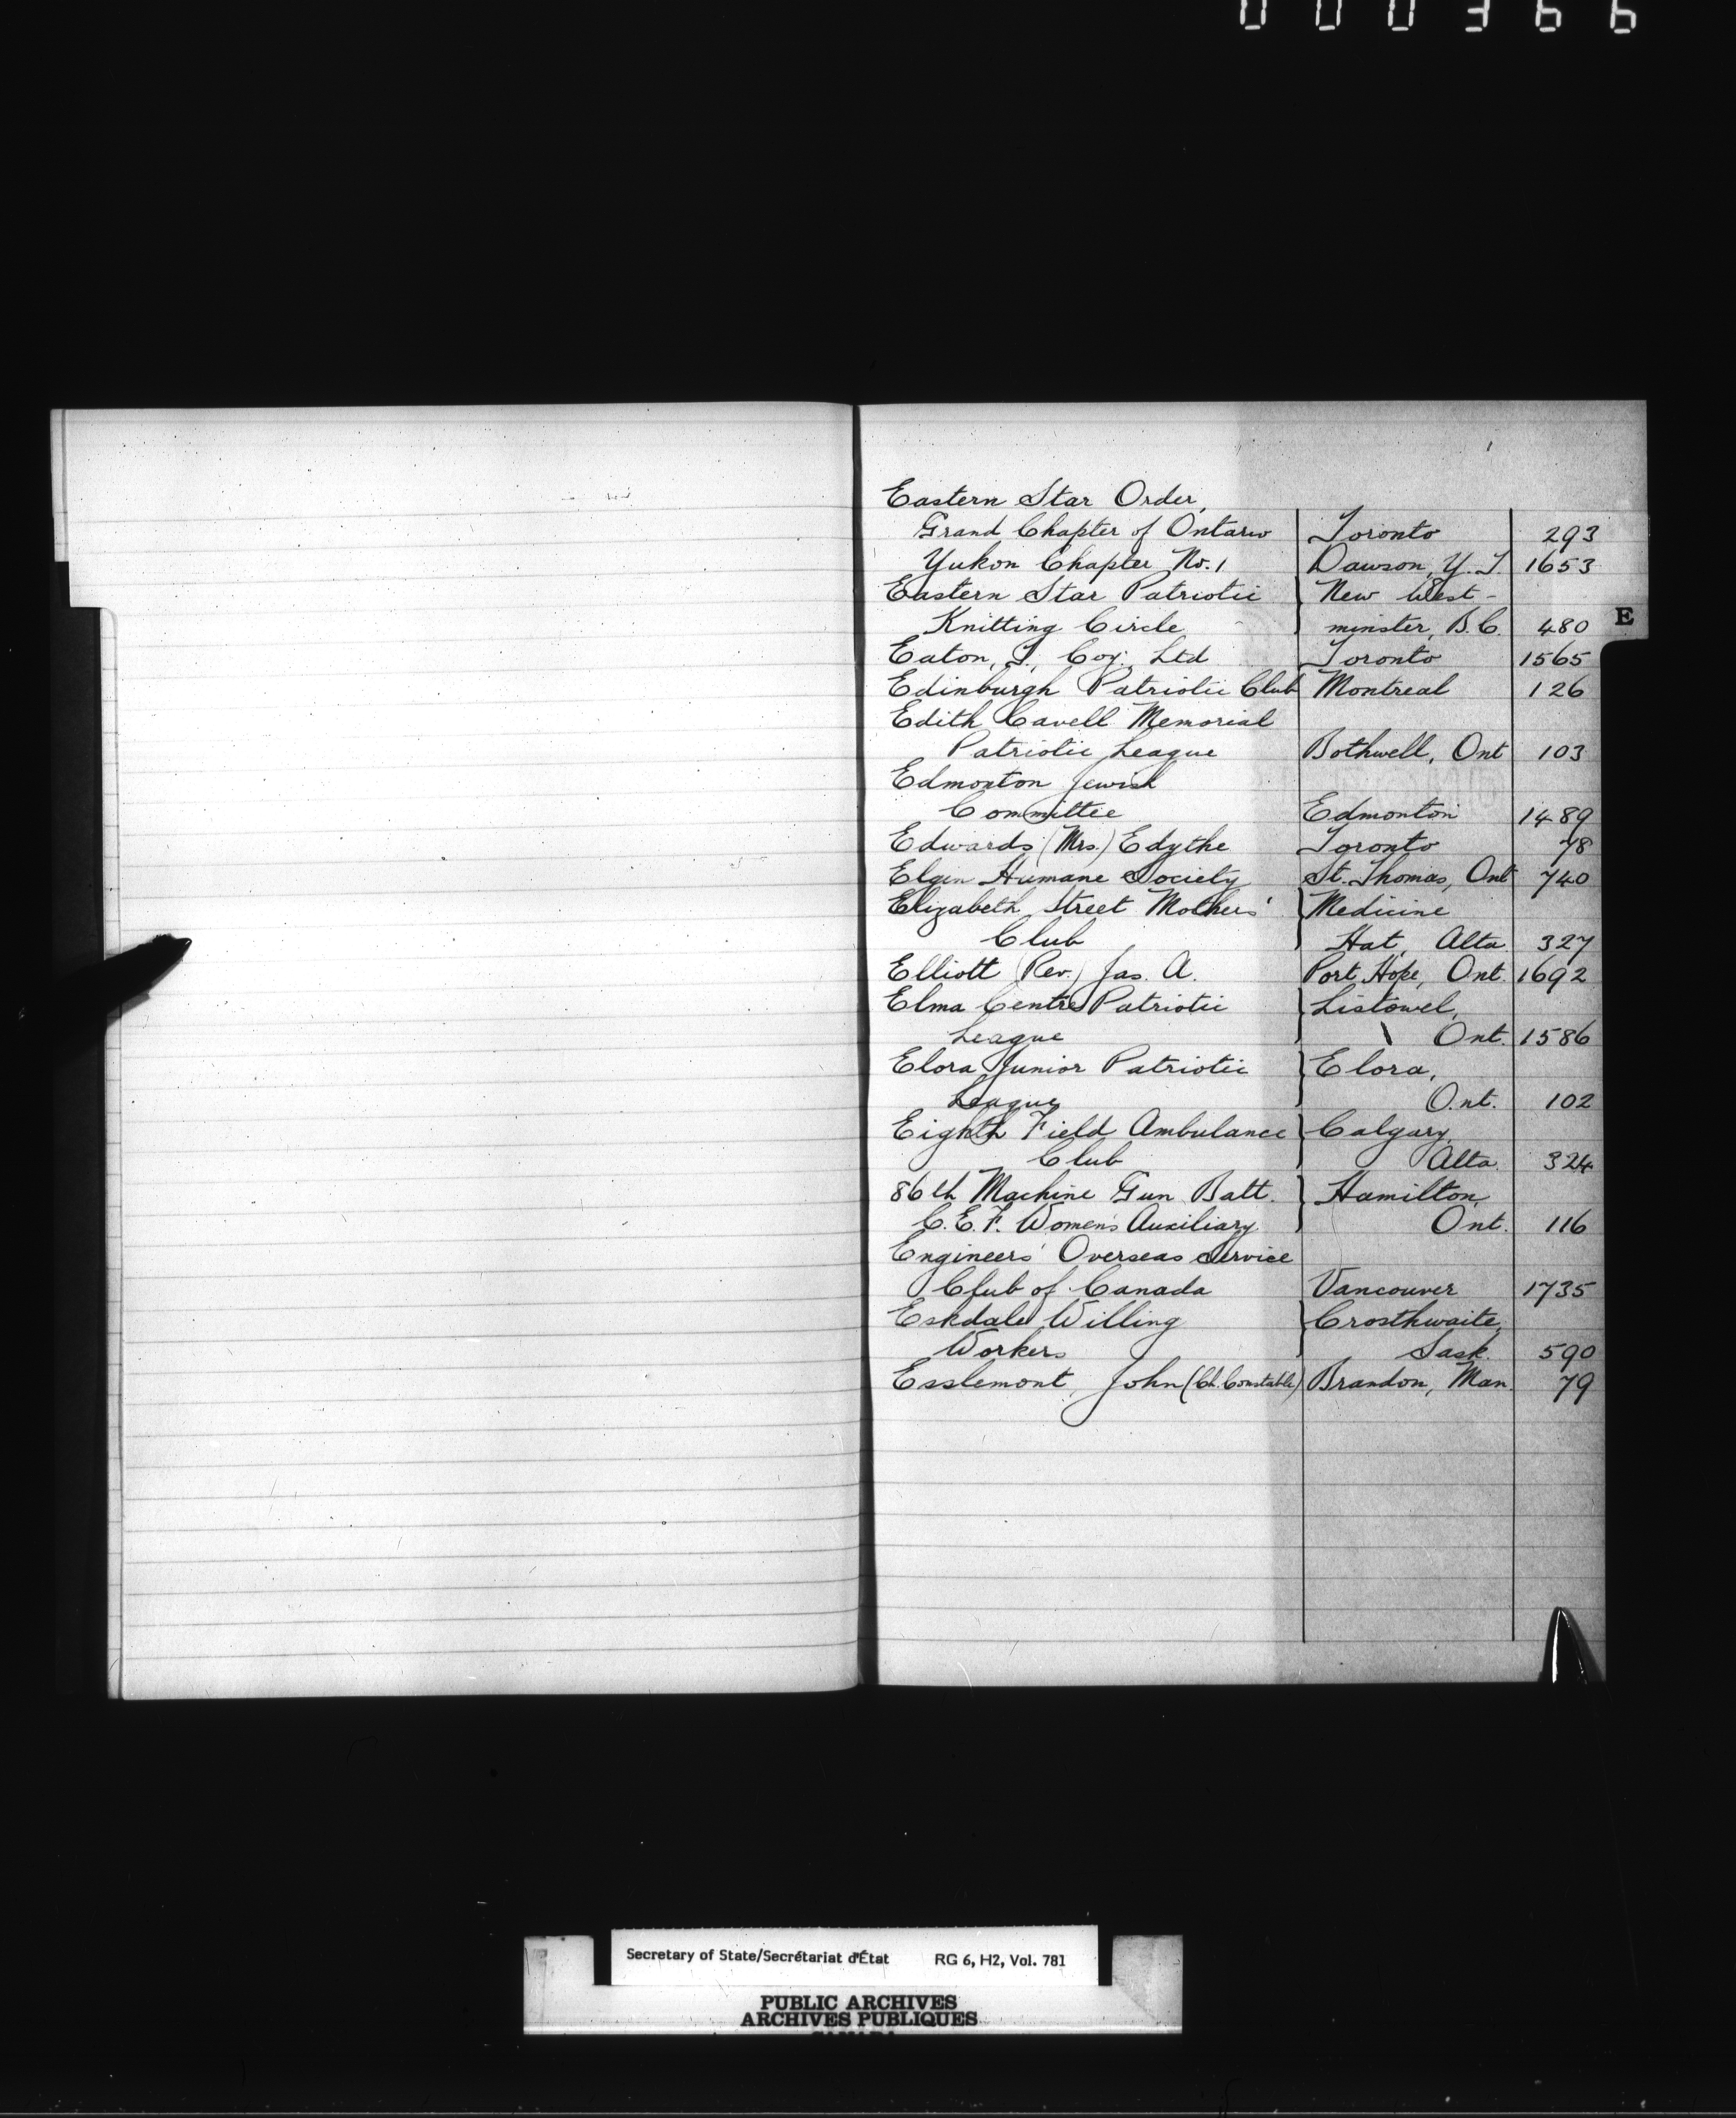 000366
Eastern Star Order,
Grand Chapter of Ontario Toronto 293
Yukon Chapter, No. 1 Dawson, Y. T. 1653
Eastern Star Patriotic New West-
Knitting Circle minster, B.C. 480
E
Eaton, T., Coy. Ltd Toronto 1565
Edinburgh Patriotic Club Montreal 126
Edith Cavell Memorial
Patriotic League Bothwell, Ont 103
Edmonton Jewish
Committee Edmonton 1489
Edwards (Mrs.) Edythe Toronto 78
Elgin Humane Society St. Thomas, Ont 740
Elizabeth Street Mothers' Medicine
Club Hat, Alta. 327
Elliott (Rev.) Jas. A. Port Hope, Ont. 1692
Elma Centre Patriotic Listowel,
League Ont. 1586
Elora Junior Patriotic Elora,
League Ont. 102
Eighth Field Ambulance Calgary,
Club Alta. 324
86th Machine Gun Batt. Hamilton,
C.E.F. Women's Auxiliary Ont. 116
Engineers' Overseas Service
Club of Canada Vancouver 1735
Eskdale Willing Crosthwaite,
Workers Sask. 590
Esslemont, John (Ch. Constable) Brandon, Man. 79
Secretary of State/Secrétariat d'État RG 6, H2, Vol. 781
PUBLIC ARCHIVES
ARCHIVES PUBLIQUES
CANADA